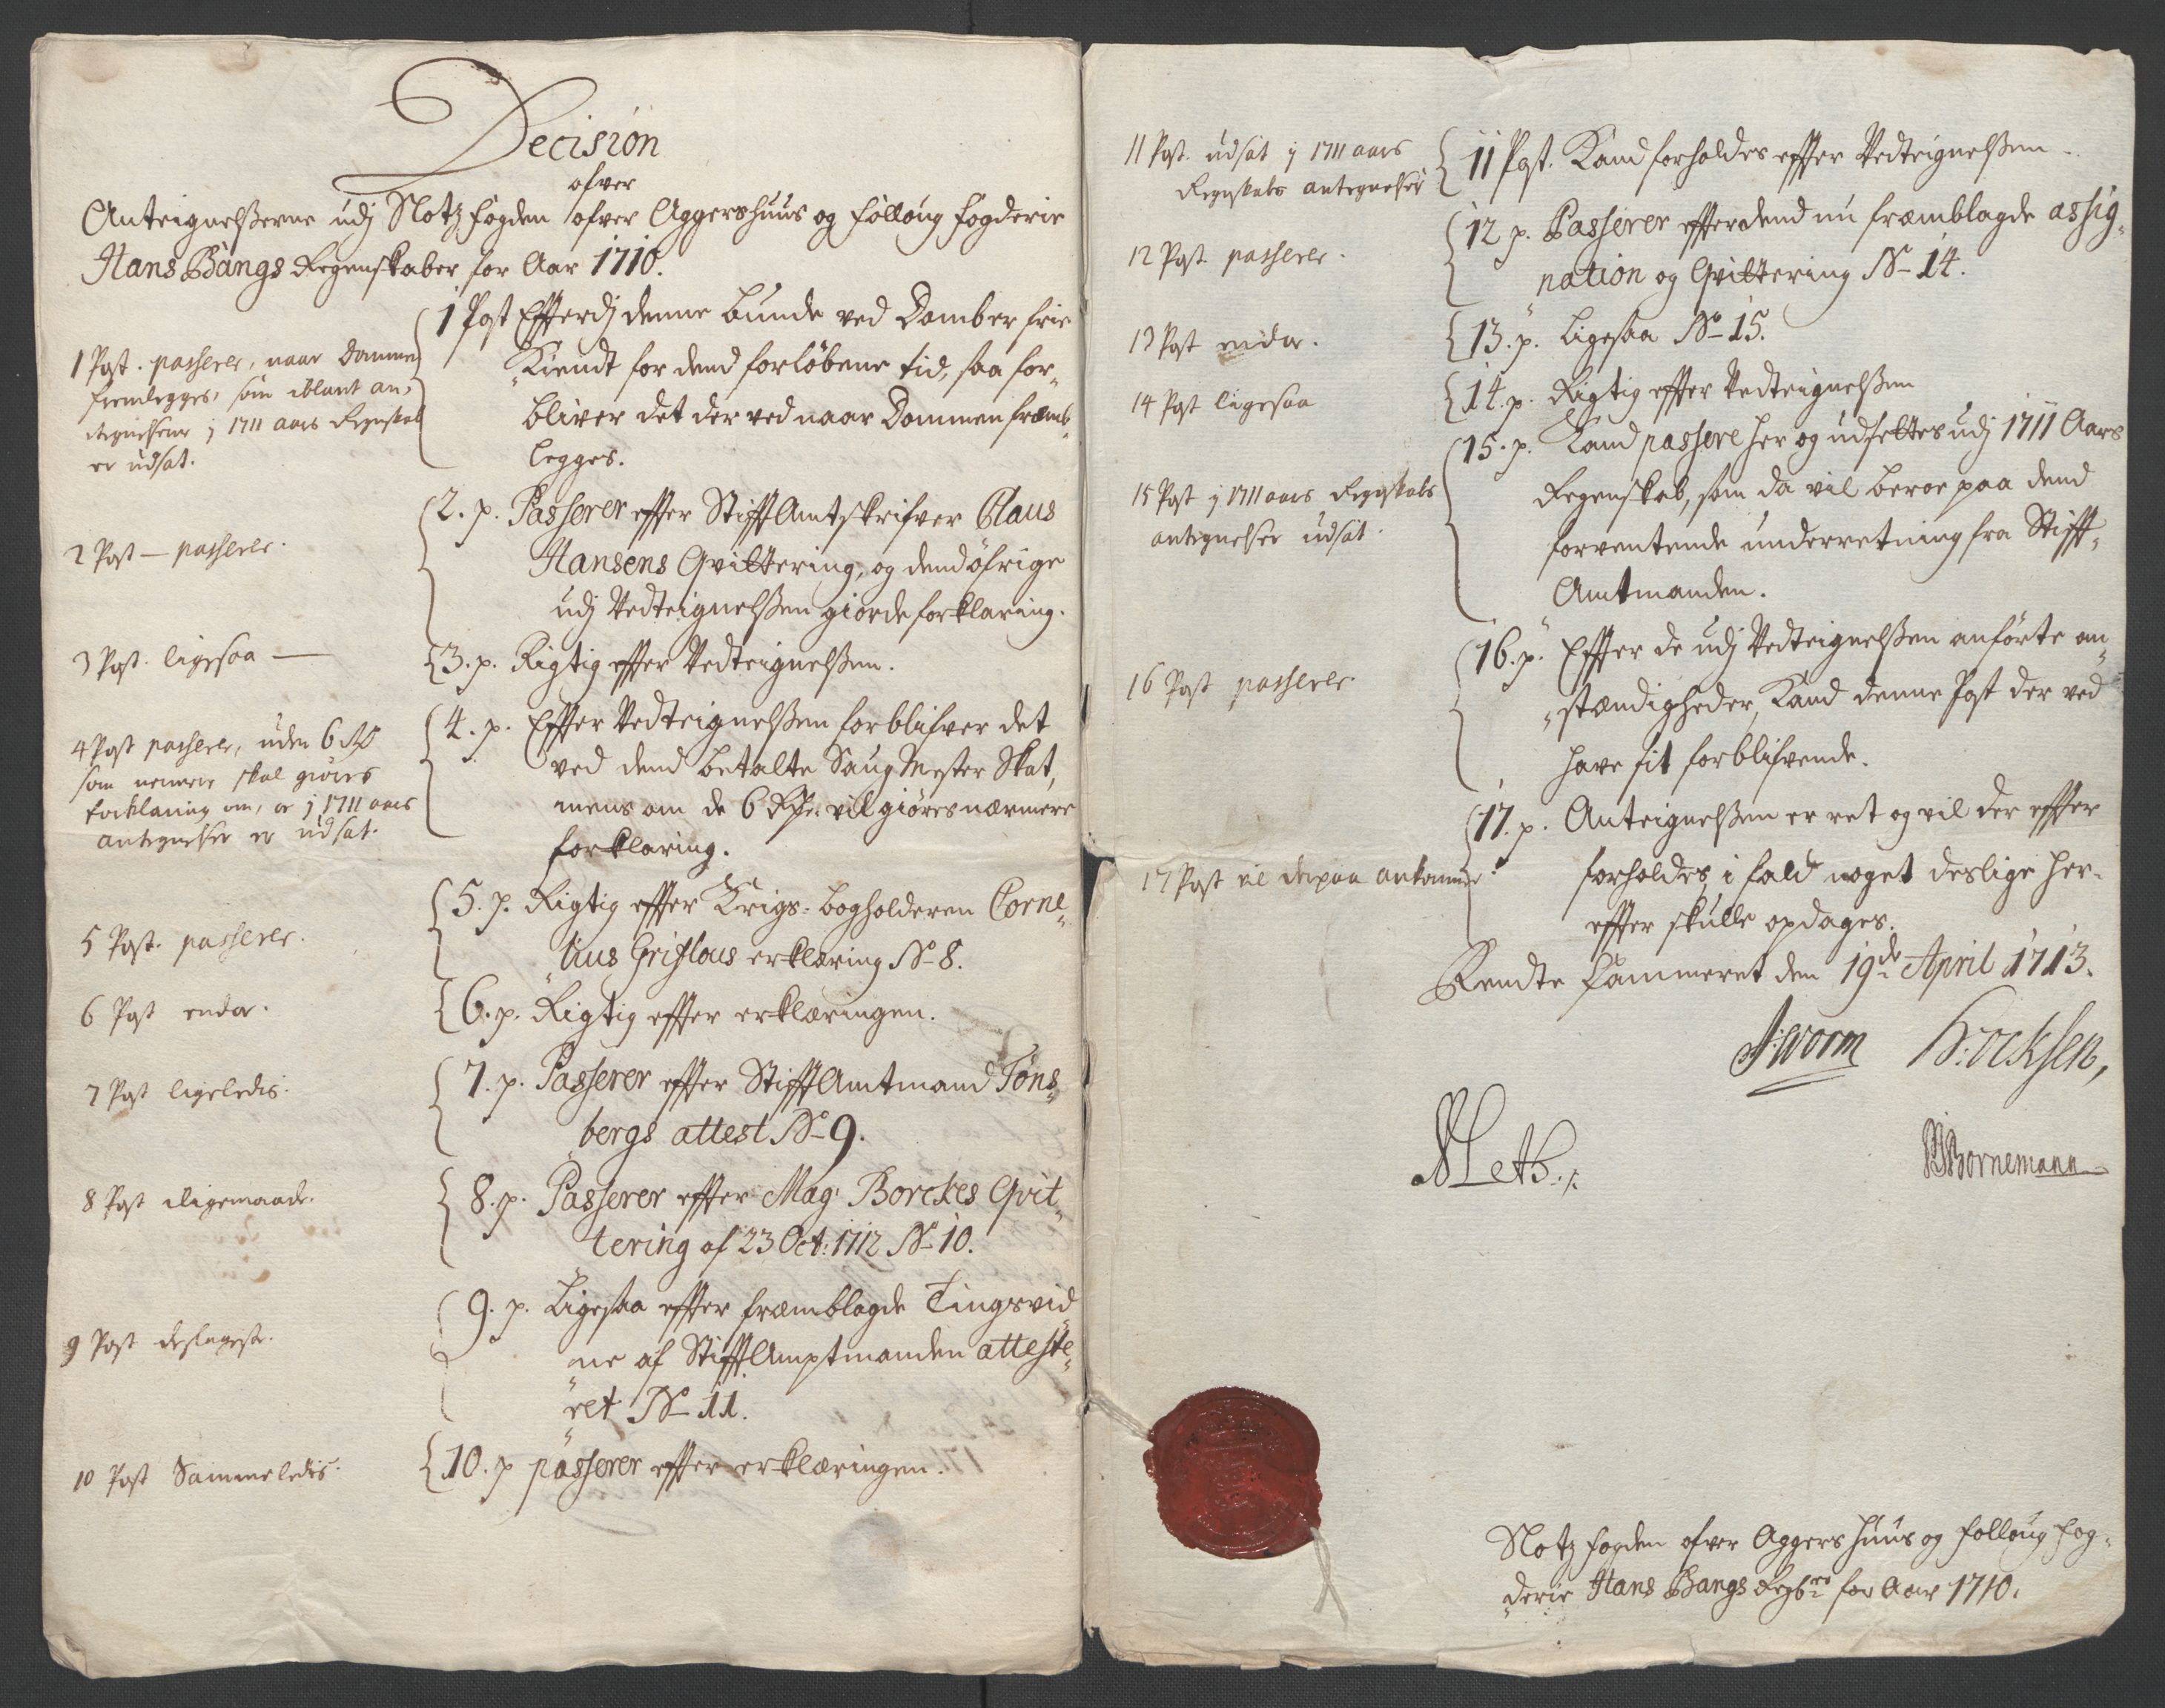 Decision
ofver
Anteignelßerne udj Slotz fogden ofver Aggershuus og Folloug fogderie
Hans Bangs Regenskaber for Aar 1710.
1 Post. passerer, naar Dommen
fremlegges, som iblant an-
tegnelserne j 1711 aars Regnskab
er udsat.
1 Post Efterdj denne bunde ved Domb er frie
Kiendt for dend forløbene tid, saa for-
bliver det der ved naar Dommen fræmb-
legges.
2 Post - passerer.
2. p. Passerer effter Stifft Amtskrifver Claus
Hansens Qvittering, og dend øfrige
udj Vedteignelßen giorde forklaring.
3 Post. ligesaa -
3. p. Rigtig effter Vedteignelßen.
4 Post passerer, uden 6 Rd
som nermere skal giøres
forklaring om, er j 1711 aars
antegnelser er udsat.
4. p. Effter Vedteignelßen forblifver det
ved dend betalte Saug Mester Skat,
mens om de 6 Rdr. vil giøres nærmere
forklaring.
5 Post. passerer.
5. p. Rigtig effter Krigs-bogholderen Corne-
lius Grislous erklæring No 8.
6 Post endar.
6. p. Rigtig effter erklæringen.
7 Post ligeledis.
7. p. Passerer effter Stifft Amtmand Tøns-
bergs attest No 9.
8 Post iligemaade.
8. p. Passerer effter Mag. Borckes Qvit-
tering af 23 Oct: 1712 No 10.
9 Post desligeste.
9. p. Ligesaa effter fræmblagde Tingsvid-
ne af Stifft Amptmanden atteste-
ret No 11.
10 Post Sammeledis.
10. p passerer effter erklæringen.
11 Post. udsat j 1711 aars
Regnskabs antegnelser
11 Post. Kand forholdes effter Vedteignelßen.
12 Post passerer.
12 p. Passerer effter dend nu fræmblagde assig-
nation og Qvittering No 14.
13 Post endar.
13. p. Ligesaa No 15.
14 Post ligesaa
14. p. Rigtig effter Vedteignelßen
15 Post j 1711 aars Regnskabs
antegnelser udsat.
15. p. Kand passere her og udsettes udj 1711 Aars
Regenskab, som da vil beroe paa dend
forventende underretning fra Stifft-
Amtmanden.
16 Post passerer.
16. p. Effter de udj Vedteignelßen anførte om-
stændigheder, Kand denne Post der ved
have sit forblifvende.
17 Post vil derpaa ankomme.
17. p. Anteignelßen er ret og vil der effter
forholdes, i fald noget deslige her-
effter skulle opdages.
Rendte Cammeret den 19de April 1713.
J Worm
Bornemann
Slotz fogden ofver Aggers huus og Folloug fog-
derie Hans Bangs Regbr for Aar 1710.